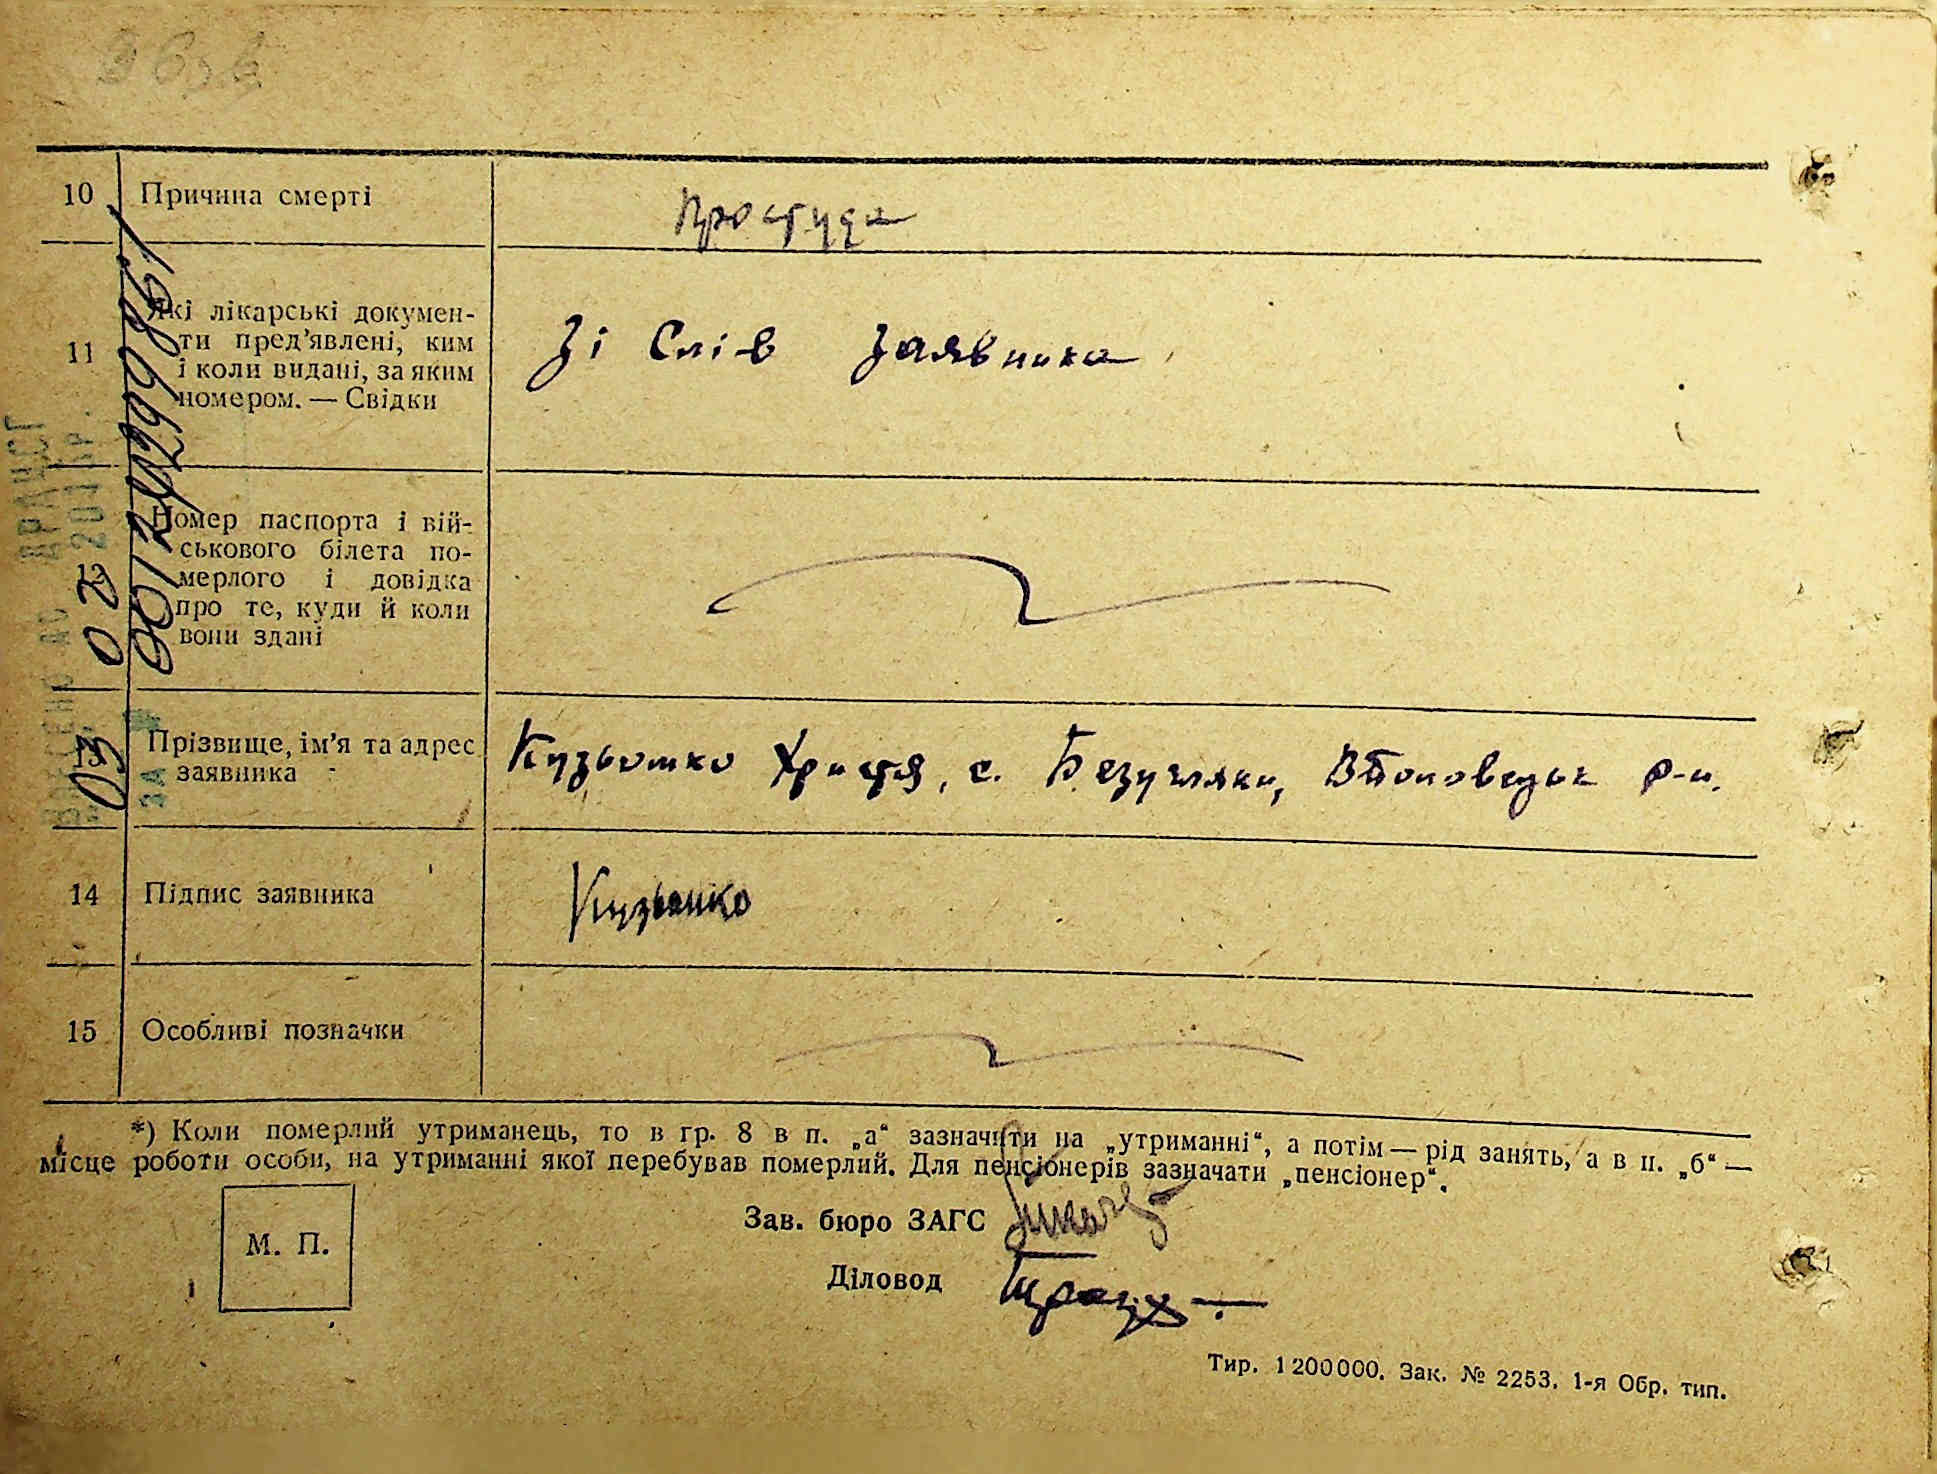 10 Причина смерті
Простуда
11 Які лікарські докумен-
ти пред’явлені, ким
і коли видані, за яким
номером. — Свідки
Зі Слів Заявника
12 Номер паспорта і вій-
ськового білета по-
мерлого і довідка
про те, куди й коли
вони здані
13 Прізвище, ім’я та адрес
заявника
Кузьменко Христя, с. Безугляки, р-н.
14 Підпис заявника
Кузьменко
15 Особливі позначки
*) Коли померлий утриманець, то в гр. 8 в п. „а“ зазначити на „утриманні“, а потім — рід занять, а в п. „б“ —
місце роботи особи, на утриманні якої перебував померлий. Для пенсіонерів зазначати „пенсіонер“.
М. П.
Зав. бюро ЗАГС
Діловод
Тир. 1 200 000. Зак. № 2253. 1-я Обр. тип.